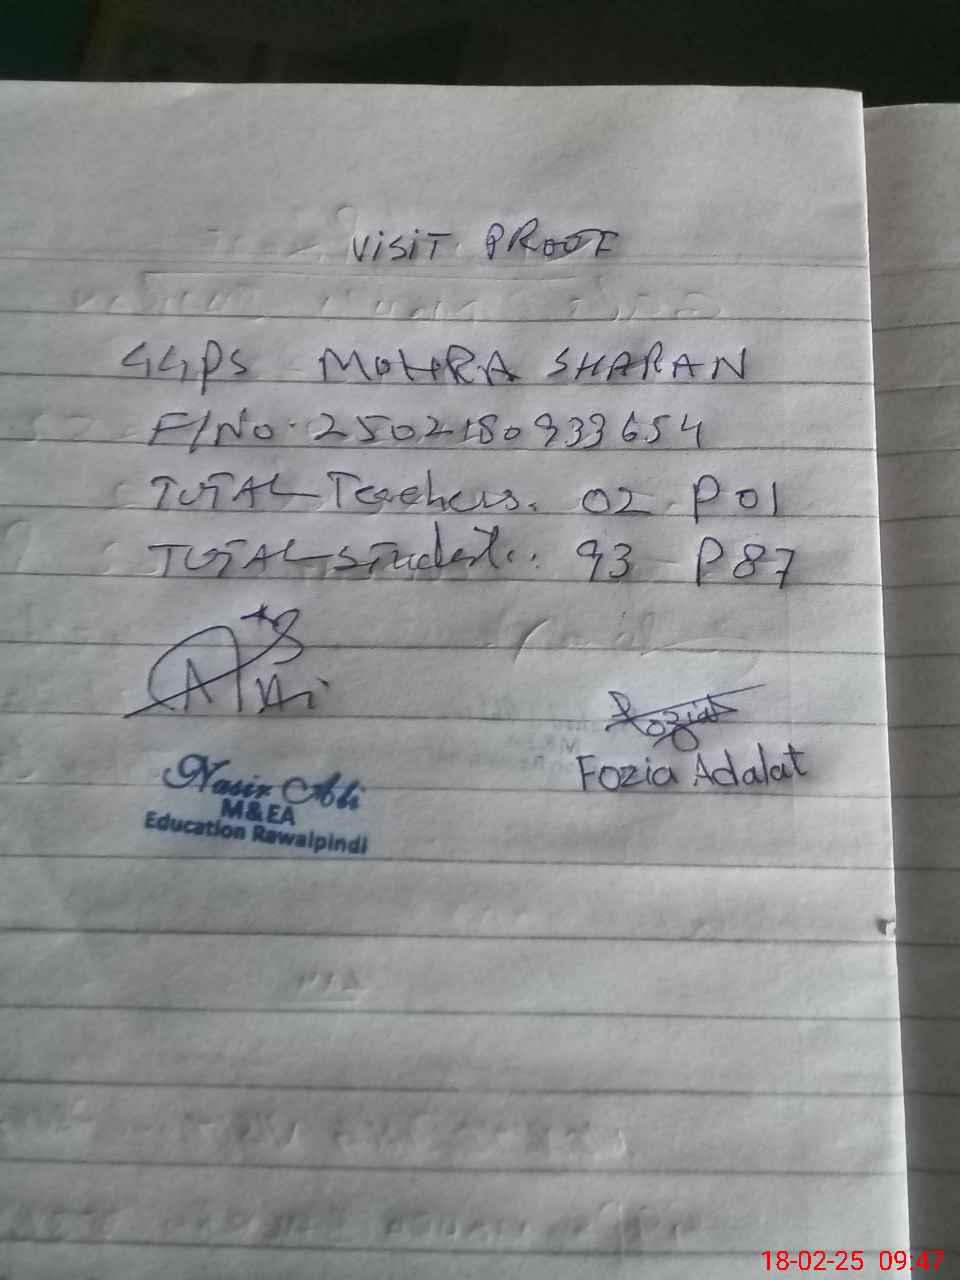 VISIT PROOF
GGPS MOHRA SHARAN
F/No. 2502180933654
TOTAL Teachers. 02 P 01
TOTAL Student.. 93 P 87
Fozia
Fozia Adalat
Nasir Ali
M&EA
Education Rawalpindi
18-02-25 09:47